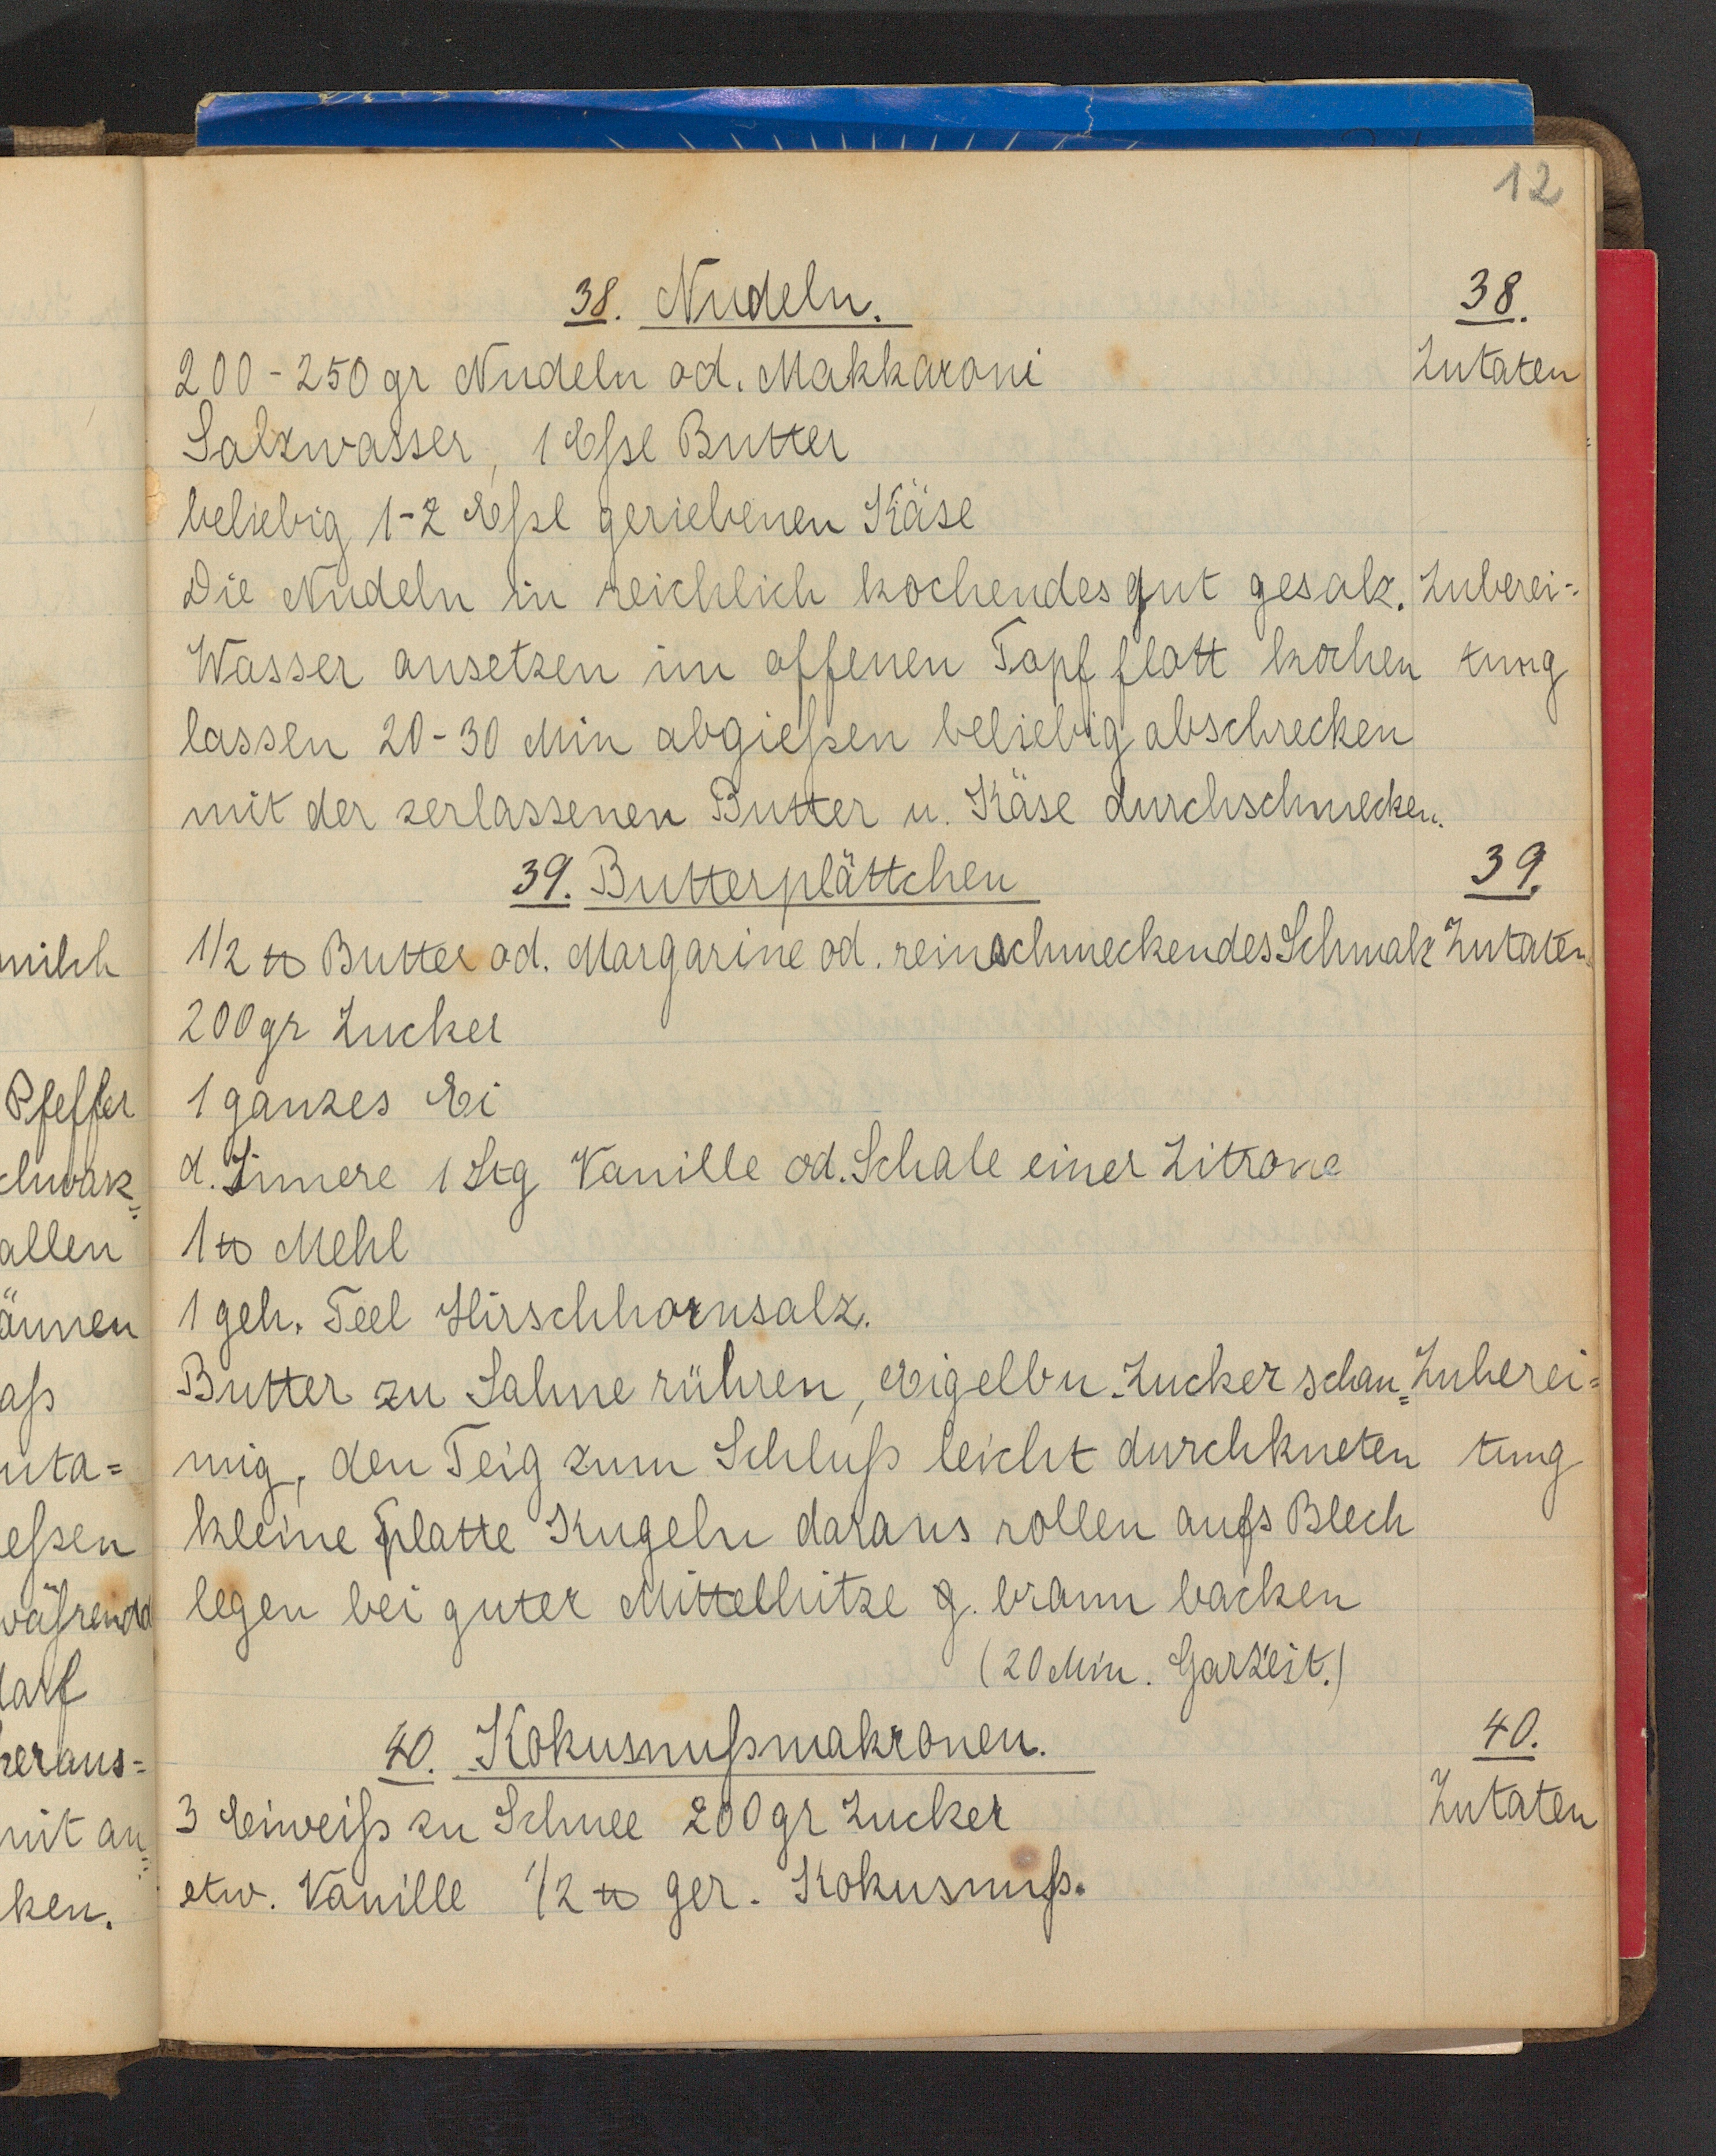 12
38. Nudeln. 38.
200-250 gr Nudeln od. Makkaroni Zutaten
Salzwasser, 1 Eßl Butter
beliebig 1-2 Eßl geriebenen Käse
Die Nudeln in reichlich kochendes gut gesalz. Zuberei=
Wasser ansetzen im offenen Topf flott kochen tung
lassen 20-30 Min abgießen beliebig abschrecken
mit der zerlassenen Butter u. Käse durchschmecken.
39. Butterplättchen 39.
1/2 ℔ Butter od. Margarine od. reinschmeckendes Schmalz Zutaten
200 gr Zucker
1 ganzes Ei
d. Innere 1 Stg Vanille od. Schale einer Zitrone
1 ℔ Mehl
1 geh. Teel Hirschhornsalz.
Butter zu Sahne rühren, Eigelb u. Zucker schau= Zuberei=
mig, den Teig zum Schluß leicht durchkneten tung
kleine platte Kugeln daraus rollen aufs Blech
legen bei guter Mittelhitze g. braun backen
(20 Min. Garzeit.)
40. Kokusnußmakronen. 40.
3 Eiweiß zu Schnee 200 gr Zucker Zutaten
etw. Vanille 1/2 ℔ ger. Kokusnuß.
milch
Pfeffer
chwarz=
allen
ännen
aß
uta=
eßen
während
darf
heraus=
mit an=
ken.